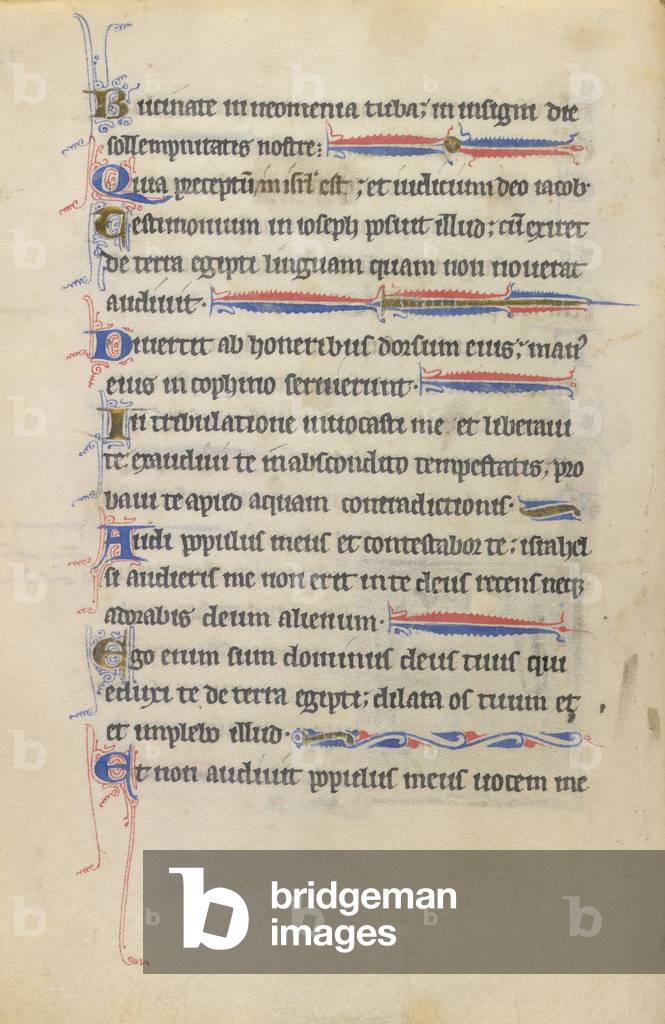 Bucinate in neomenia tuba; in insigni die
sollempnitatis nostre:
Quia preceptū in isrl' est; et iudicium deo iacob.
Testimonium in ioseph posuit illud; cū exiret
de terra egipti linguam quam non nouerat
audiuit.
Diuertit ab honeribus dorsum eius; man9
eius in cophino seruierunt.
In tribulatione inuocasti me et liberaui
te: exaudiui te in abscondito tempestatis, pro
baui te apud aquam contradictionis.
Audi populus meus et contestabor te; israhel
si audieris me non erit in te deus recens neq3
adorabis deum alienum.
Ego enim sum dominus deus tuus qui
eduxi te de terra egipti; dilata os tuum et
et implebo illud.
Et non audiuit populus meus uocem me
bridgeman
images